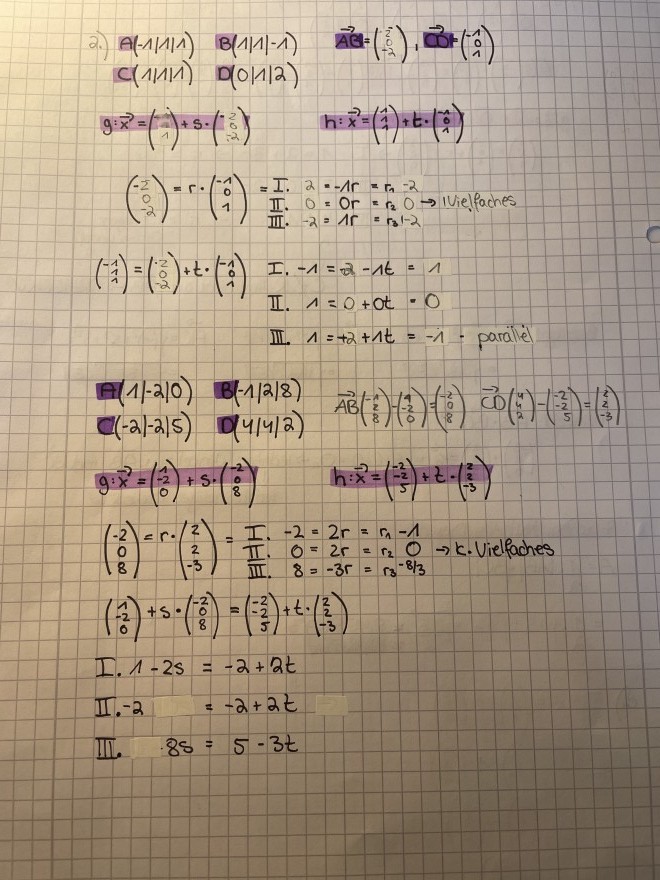 2.) A(-1|1|1) B(1|1|-1) AB→=(2 0 -2), CD→=(-1 0 1)
C(1|1|1) D(0|1|2)
g:x→=( 1)+s·(2 0 -2) h:x→=(1 1 1)+t·(-1 0 1)
(-2 0 -2)=r·(-1 0 1) = I. 2 = -1r = r₁ -2
II. 0 = 0r = r₂ 0 → !Vielfaches
III. -2 = 1r = r₃ -2
(-1 1 1)=(-2 0 -2)+t·(-1 0 1) I. -1 = -2 -1t = 1
II. 1 = 0 + 0t = 0
III. 1 = +2 + 1t = -1 - parallel
A(1|-2|0) B(-1|2|8) AB→(-1 2 8)-(1 -2 0)=(-2 0 8) CD→(4 4 2)-(-2 -2 5)=(2 2 -3)
C(-2|-2|5) D(4|4|2)
g:x→=(1 -2 0)+s·(-2 0 8) h:x→=(-2 -2 5)+t·(2 2 -3)
(-2 0 8)=r·(2 2 -3) = I. -2 = 2r = r₁ -1
II. 0 = 2r = r₂ 0 → k. Vielfaches
III. 8 = -3r = r₃ -8/3
(1 -2 0)+s·(-2 0 8) = (-2 -2 5)+t·(2 2 -3)
I. 1 - 2s = -2 + 2t
II. -2 = -2 + 2t
III. 8s = 5 - 3t